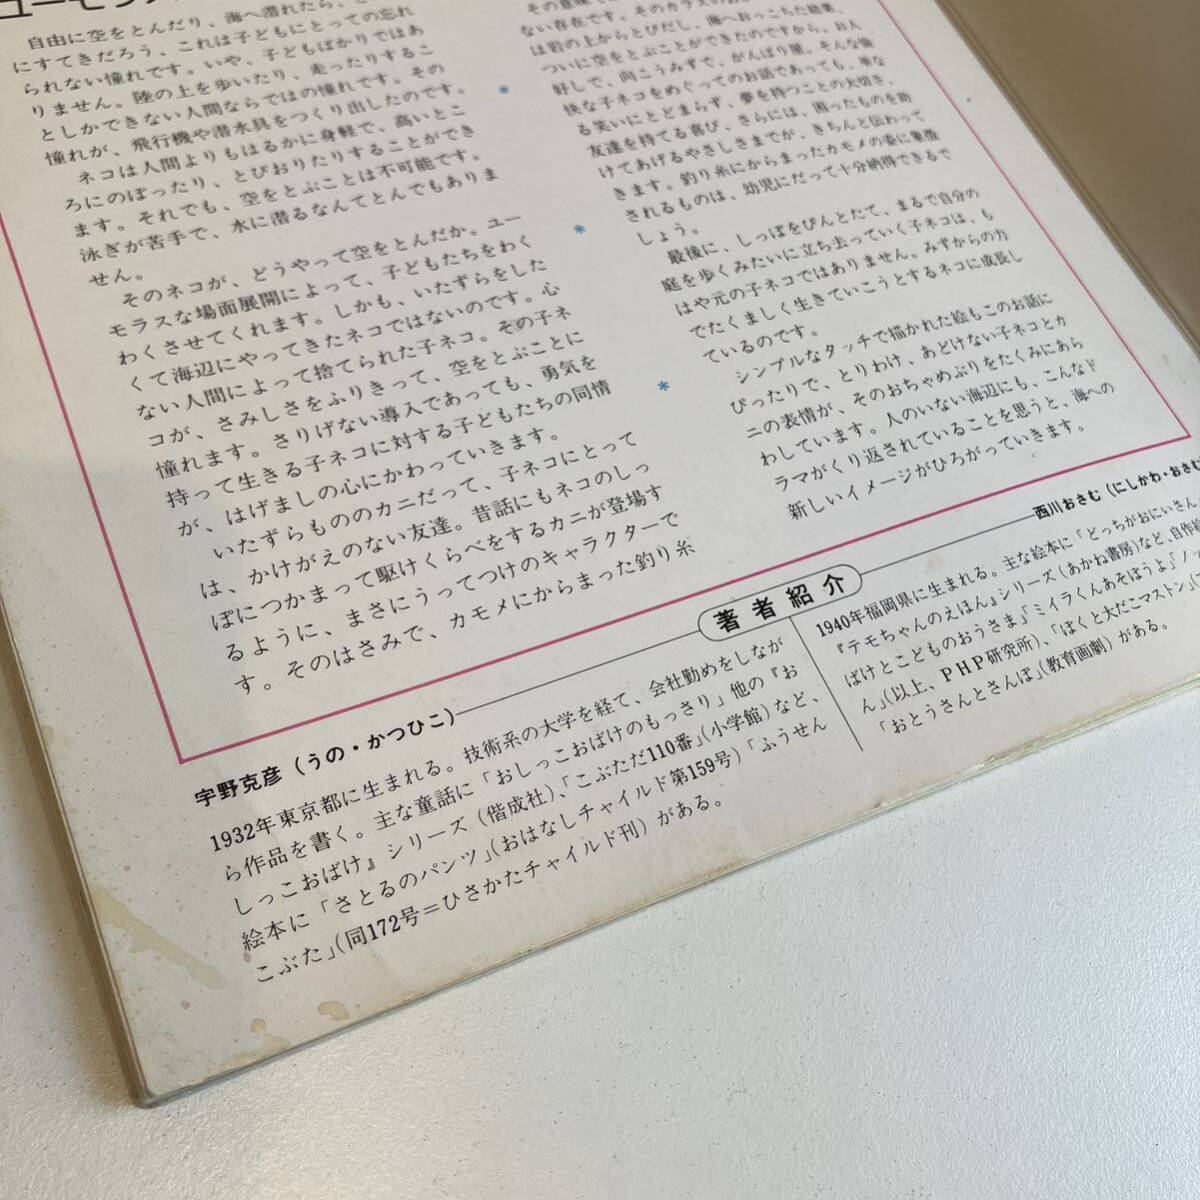 自由に空をとんだり、海へ潜れたら、ど
にすてきだろう、これは子どもにとっての忘れ
られない憧れです。いや、子どもばかりではあ
りません。陸の上を歩いたり、走ったりするこ
としかできない人間ならではの憧れです。その
憧れが、飛行機や潜水具をつくり出したのです。
ネコは人間よりもはるかに身軽で、高いとこ
ろにのぼったり、とびおりたりすることができ
ます。それでも、空をとぶことは不可能です。
泳ぎが苦手で、水に潜るなんてとんでもありま
せん。
そのネコが、どうやって空をとんだか。ユー
モラスな場面展開によって、子どもたちをわく
わくさせてくれます。しかも、いたずらをした
くて海辺にやってきたネコではないのです。心
ない人間によって捨てられた子ネコ。その子ネ
コが、さみしさをふりきって、空をとぶことに
憧れます。さりげない導入であっても、勇気を
持って生きる子ネコに対する子どもたちの同情
が、はげましの心にかわっていきます。
いたずらもののカニだって、子ネコにとって
は、かけがえのない友達。昔話にもネコのしっ
ぽにつかまって駆けくらべをするカニが登場す
るように、まさにうってつけのキャラクターで
す。そのはさみで、カモメにからまった釣り糸
ない存在です。そのカラスのおか
は岩の上からとびだし、海へおっこちた結果、
ついに空をとぶことができたのですから。お人
好しで、向こうみずで、がんばり屋。そんな愉
快な子ネコをめぐってのお話であっても、単な
る笑いにとどまらず、夢を持つことの大切さ、
友達を持てる喜び、さらには、困ったものを助
けてあげるやさしさまでが、きちんと伝わって
きます。釣り糸にからまったカモメの姿に象徴
されるものは、幼児にだって十分納得できるで
しょう。
最後に、しっぽをぴんとたて、まるで自分の
庭を歩くみたいに立ち去っていく子ネコは、も
はや元の子ネコではありません。みずからの力
でたくましく生きていこうとするネコに成長し
ているのです。
シンプルなタッチで描かれた絵もこのお話に
ぴったりで、とりわけ、あどけない子ネコとカ
ニの表情が、そのおちゃめぶりをたくみにあら
わしています。人のいない海辺にも、こんなド
ラマがくり返されていることを思うと、海への
新しいイメージがひろがっていきます。
著者紹介
宇野克彦（うの・かつひこ）
1932年東京都に生まれる。技術系の大学を経て、会社勤めをしなが
ら作品を書く。主な童話に「おしっこおばけのもっさり」他の『お
しっこおばけ』シリーズ（偕成社）、「こぶただ110番」（小学館）など、
絵本に「さとるのパンツ」（おはなしチャイルド第159号）「ふうせん
こぶた」（同172号＝ひさかたチャイルド刊）がある。
西川おさむ（にしかわ・おさむ
1940年福岡県に生まれる。主な絵本に「どっちがおにいさん
『テモちゃんのえほん』シリーズ（あかね書房）など、自作絵
ばけとこどものおうさま」「ミイラくんあそぼうよ」「ノ
ん」（以上、PHP研究所）、「ぼくと大だこマストン」
「おとうさんとさんぽ」（教育画劇）がある。